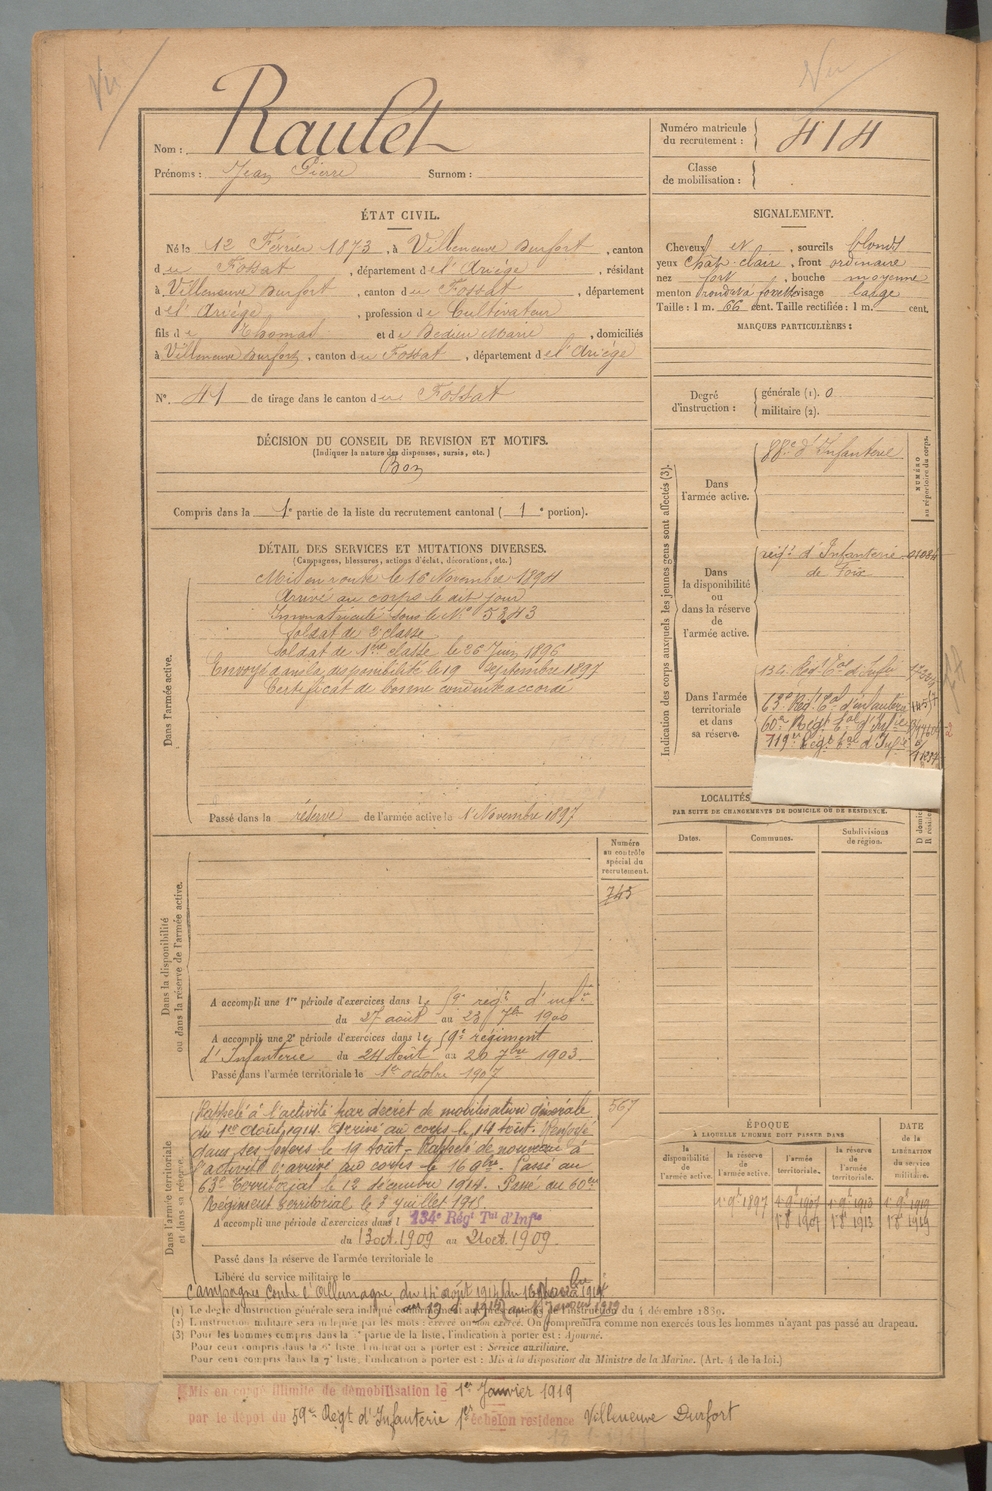 Vu
Vu
Nom : Raulet
Prénoms : Jean Pierre Surnom :
Numéro matricule
du recrutement : 414
Classe
de mobilisation :
ÉTAT CIVIL.
Né le 12 Février 1873, à Villeneuve Durfort, canton
du Fossat, département de l'Ariège, résidant
à Villeneuve Durfort, canton du Fossat, département
de l'Ariège, profession de Cultivateur
fils de Thomas et de Dedieu Marie, domiciliés
à Villeneuve Durfort, canton du Fossat, département de l'Ariège
N° 41 de tirage dans le canton du Fossat
SIGNALEMENT.
Cheveux et, sourcils blonds
yeux chât-clair, front ordinaire
nez fort, bouche moyenne
menton rond à fossette visage large
Taille : 1 m. 66 cent. Taille rectifiée : 1 m. cent.
MARQUES PARTICULIÈRES :
DÉCISION DU CONSEIL DE REVISION ET MOTIFS.
(Indiquer la nature des dispenses, sursis, etc.)
Bon
Compris dans la 1e partie de la liste du recrutement cantonal ( 1 e portion).
Degré
d'instruction :
générale (1). 0
militaire (2).
DÉTAIL DES SERVICES ET MUTATIONS DIVERSES.
(Campagnes, blessures, actions d'éclat, décorations, etc.)
Dans l'armée active.
Mis en route le 16 Novembre 1894
Arrivé au corps le dit jour
Immatriculé sous le N° 5243
Soldat de 2e classe
Soldat de 1ère classe le 26 Juin 1896
Envoyé dans la disponibilité le 19 Septembre 1897
Certificat de bonne conduite accordé
Passé dans la réserve de l'armée active le 1er Novembre 1897
Indication des corps auxquels les jeunes gens sont affectés (3).
NUMÉRO
au répertoire du corps.
Dans
l'armée active.
88e d'Infanterie
Dans
la disponibilité
ou
dans la réserve
de
l'armée active.
régt d'Infanterie
de Foix
Dans l'armée
territoriale
et dans
sa réserve.
134e Régt Tal d'Infie
63e Régt Tal d'infanterie
60e Régt Tal d'Infie
119e Régt Tal d'Infie
LOCALITÉS
PAR SUITE DE CHANGEMENTS DE DOMICILE OU DE RÉSIDENCE.
Dates. Communes. Subdivisions
de région.
D domic
R réside
Numéro
au contrôle
spécial du
recrutement.
745
Dans la disponibilité
ou dans la réserve de l'armée active.
A accompli une 1re période d'exercices dans le 59e régt d'infie
du 27 août au 23 7bre 1900
A accompli une 2e période d'exercices dans le 59e régiment
d'Infanterie du 24 Août au 20 7bre 1903
Passé dans l'armée territoriale le 1er octobre 1907
Dans l'armée territoriale
et dans sa réserve.
567
Rappelé à l'activité par décret de mobilisation générale
du 1er Août 1914. Arrivé au corps le 14 août. Renvoyé
dans ses foyers le 19 août - Rappelé de nouveau à
l'activité et arrivé au corps le 16 9bre. Passé au
63e Territorial le 12 décembre 1914. Passé au 60e
Régiment territorial le 3 juillet 1915
A accompli une période d'exercices dans l 134e Régt Tal d'Infie
du 13 oct. 1909 au 21 oct. 1909
Passé dans la réserve de l'armée territoriale le
Libéré du service militaire le
Campagnes contre l'Allemagne, du 14 août 1914
ÉPOQUE
À LAQUELLE L'HOMME DOIT PASSER DANS
la
disponibilité
de
l'armée active.
la réserve
de
l'armée active.
l'armée
territoriale.
la réserve
de
l'armée
territoriale.
DATE
de la
LIBÉRATION
du service
militaire.
1er 9bre 1897 1er 9bre 1907 1er 9bre 1913 1er 9bre 1919
1er 8bre 1907 1er 8bre 1913 1er 8bre 1919
(1) Le degré d'instruction générale sera indiqué du 4 décembre 1889.
(2) L'instruction militaire sera indiquée par les mots : exercé ou non exercé. On comprendra comme non exercés tous les hommes n'ayant pas passé au drapeau.
(3) Pour les hommes compris dans la partie de la liste, l'indication à porter est : Ajourné.
Pour ceux compris dans la 6e liste, l'indication à porter est : Service auxiliaire.
Pour ceux compris dans la 7e liste, l'indication à porter est : Mis à la disposition du Ministre de la Marine. (Art. 4 de la loi.)
Mis en congé illimité de démobilisation le 1er Janvier 1919
par le dépôt du 59e Régt d'Infanterie 1er échelon résidence Villeneuve Durfort